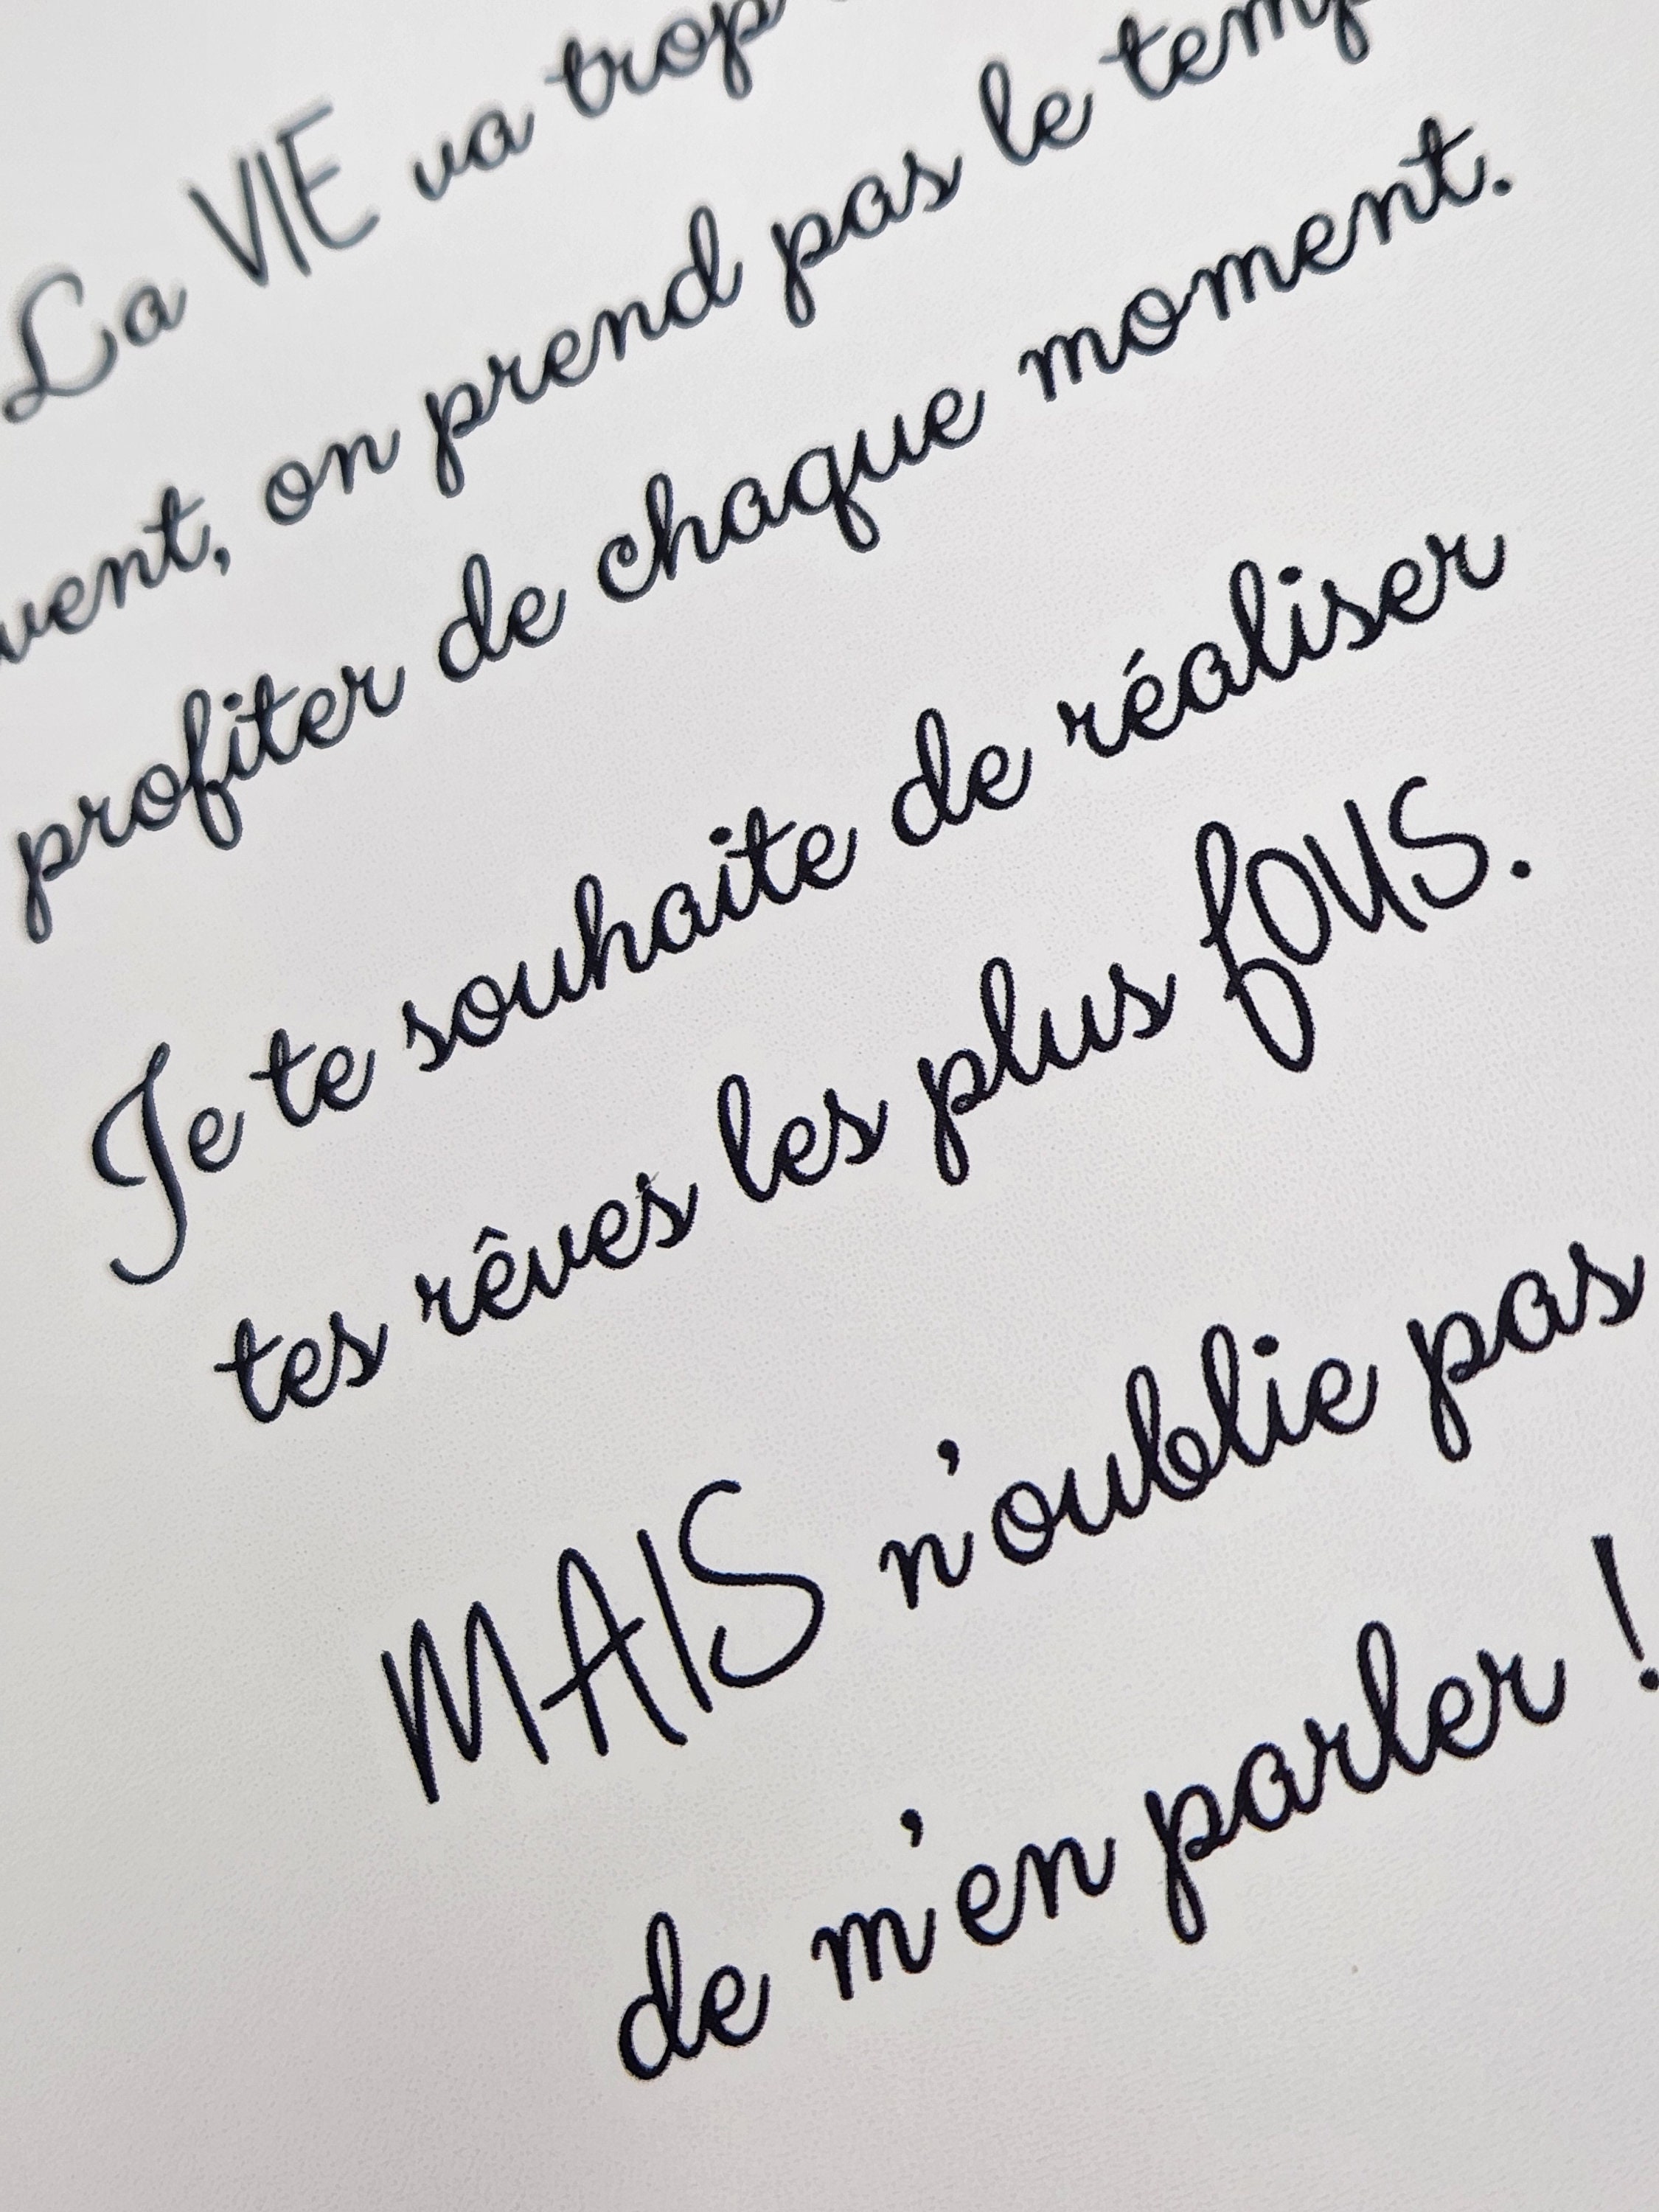 La VIE va trop
vent, on prend pas le temp
profiter de chaque moment.
Je te souhaite de réaliser
tes rêves les plus fous.
MAIS n'oublie pas
de m'en parler !